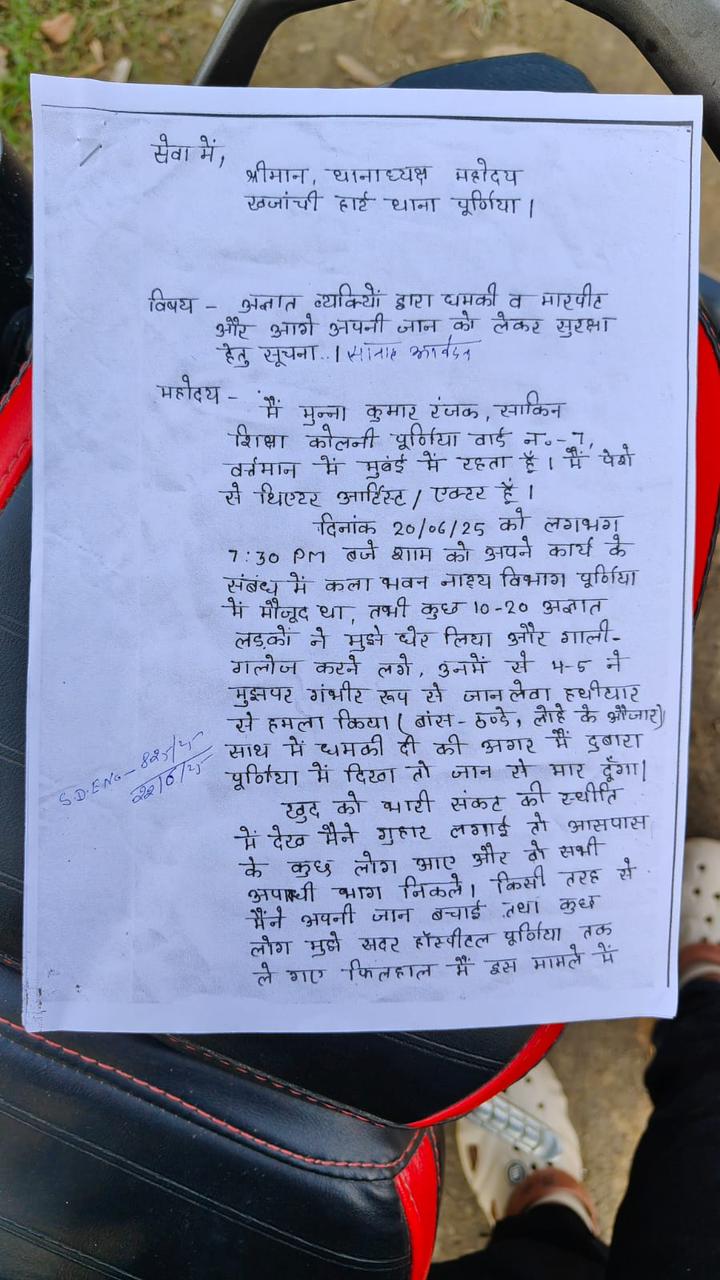 सेवा में,
श्रीमान, थानाध्यक्ष महोदय
खजांची हाट थाना पूर्णिया।
विषय - अज्ञात व्यक्तियों द्वारा धमकी व मारपीट
और आगे अपनी जान को लेकर सुरक्षा
हेतु सूचना..।
महोदय -
मैं मुन्ना कुमार रंजक, साकिन
शिक्षा कोलनी पूर्णिया वार्ड न.-7,
वर्तमान में मुबंई में रहता हूँ। मैं पेशे
से थिएटर आर्टिस्ट / एक्टर हूँ।
दिनांक 20/06/25 को लगभग
7:30 PM बजे शाम को अपने कार्य के
संबंध में कला भवन नाट्य विभाग पूर्णिया
में मौजूद था, तभी कुछ 10-20 अज्ञात
लड़कों ने मुझे घेर लिया और गाली-
गलोज करने लगे, उनमें से 4-5 ने
मुझपर गंभीर रूप से जानलेवा हथीयार
से हमला किया (बांस-ठण्डे, लोहे के औजार)
साथ में धमकी दी की अगर मैं दुबारा
पूर्णिया में दिखा तो जान से मार दूँगा।
S.D.ENo- 825/25
22/6/25
खुद को भारी संकट की स्थीति
में देख मैने गुहार लगाई तो आसपास
के कुछ लोग आए और वो सभी
अपराधी भाग निकले। किसी तरह से
मैंने अपनी जान बचाई तथा कुछ
लोग मुझे सदर हॉस्पीटल पूर्णिया तक
ले गए फिलहाल मैं इस मामले में